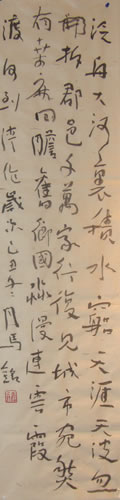 泛舟大河裏積水窮天涯天波忽
開拆郡邑千萬家行復見城市宛然
有桑麻回瞻舊鄉國淼漫連雲霞
渡河到清河作歲次己丑冬月馬